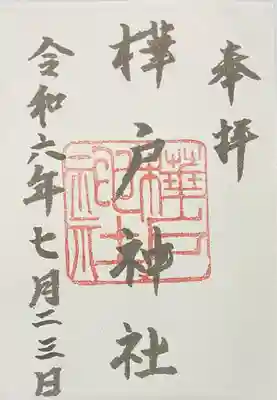 奉拝
樺戸神社
樺戸神社
令和六年七月二三日